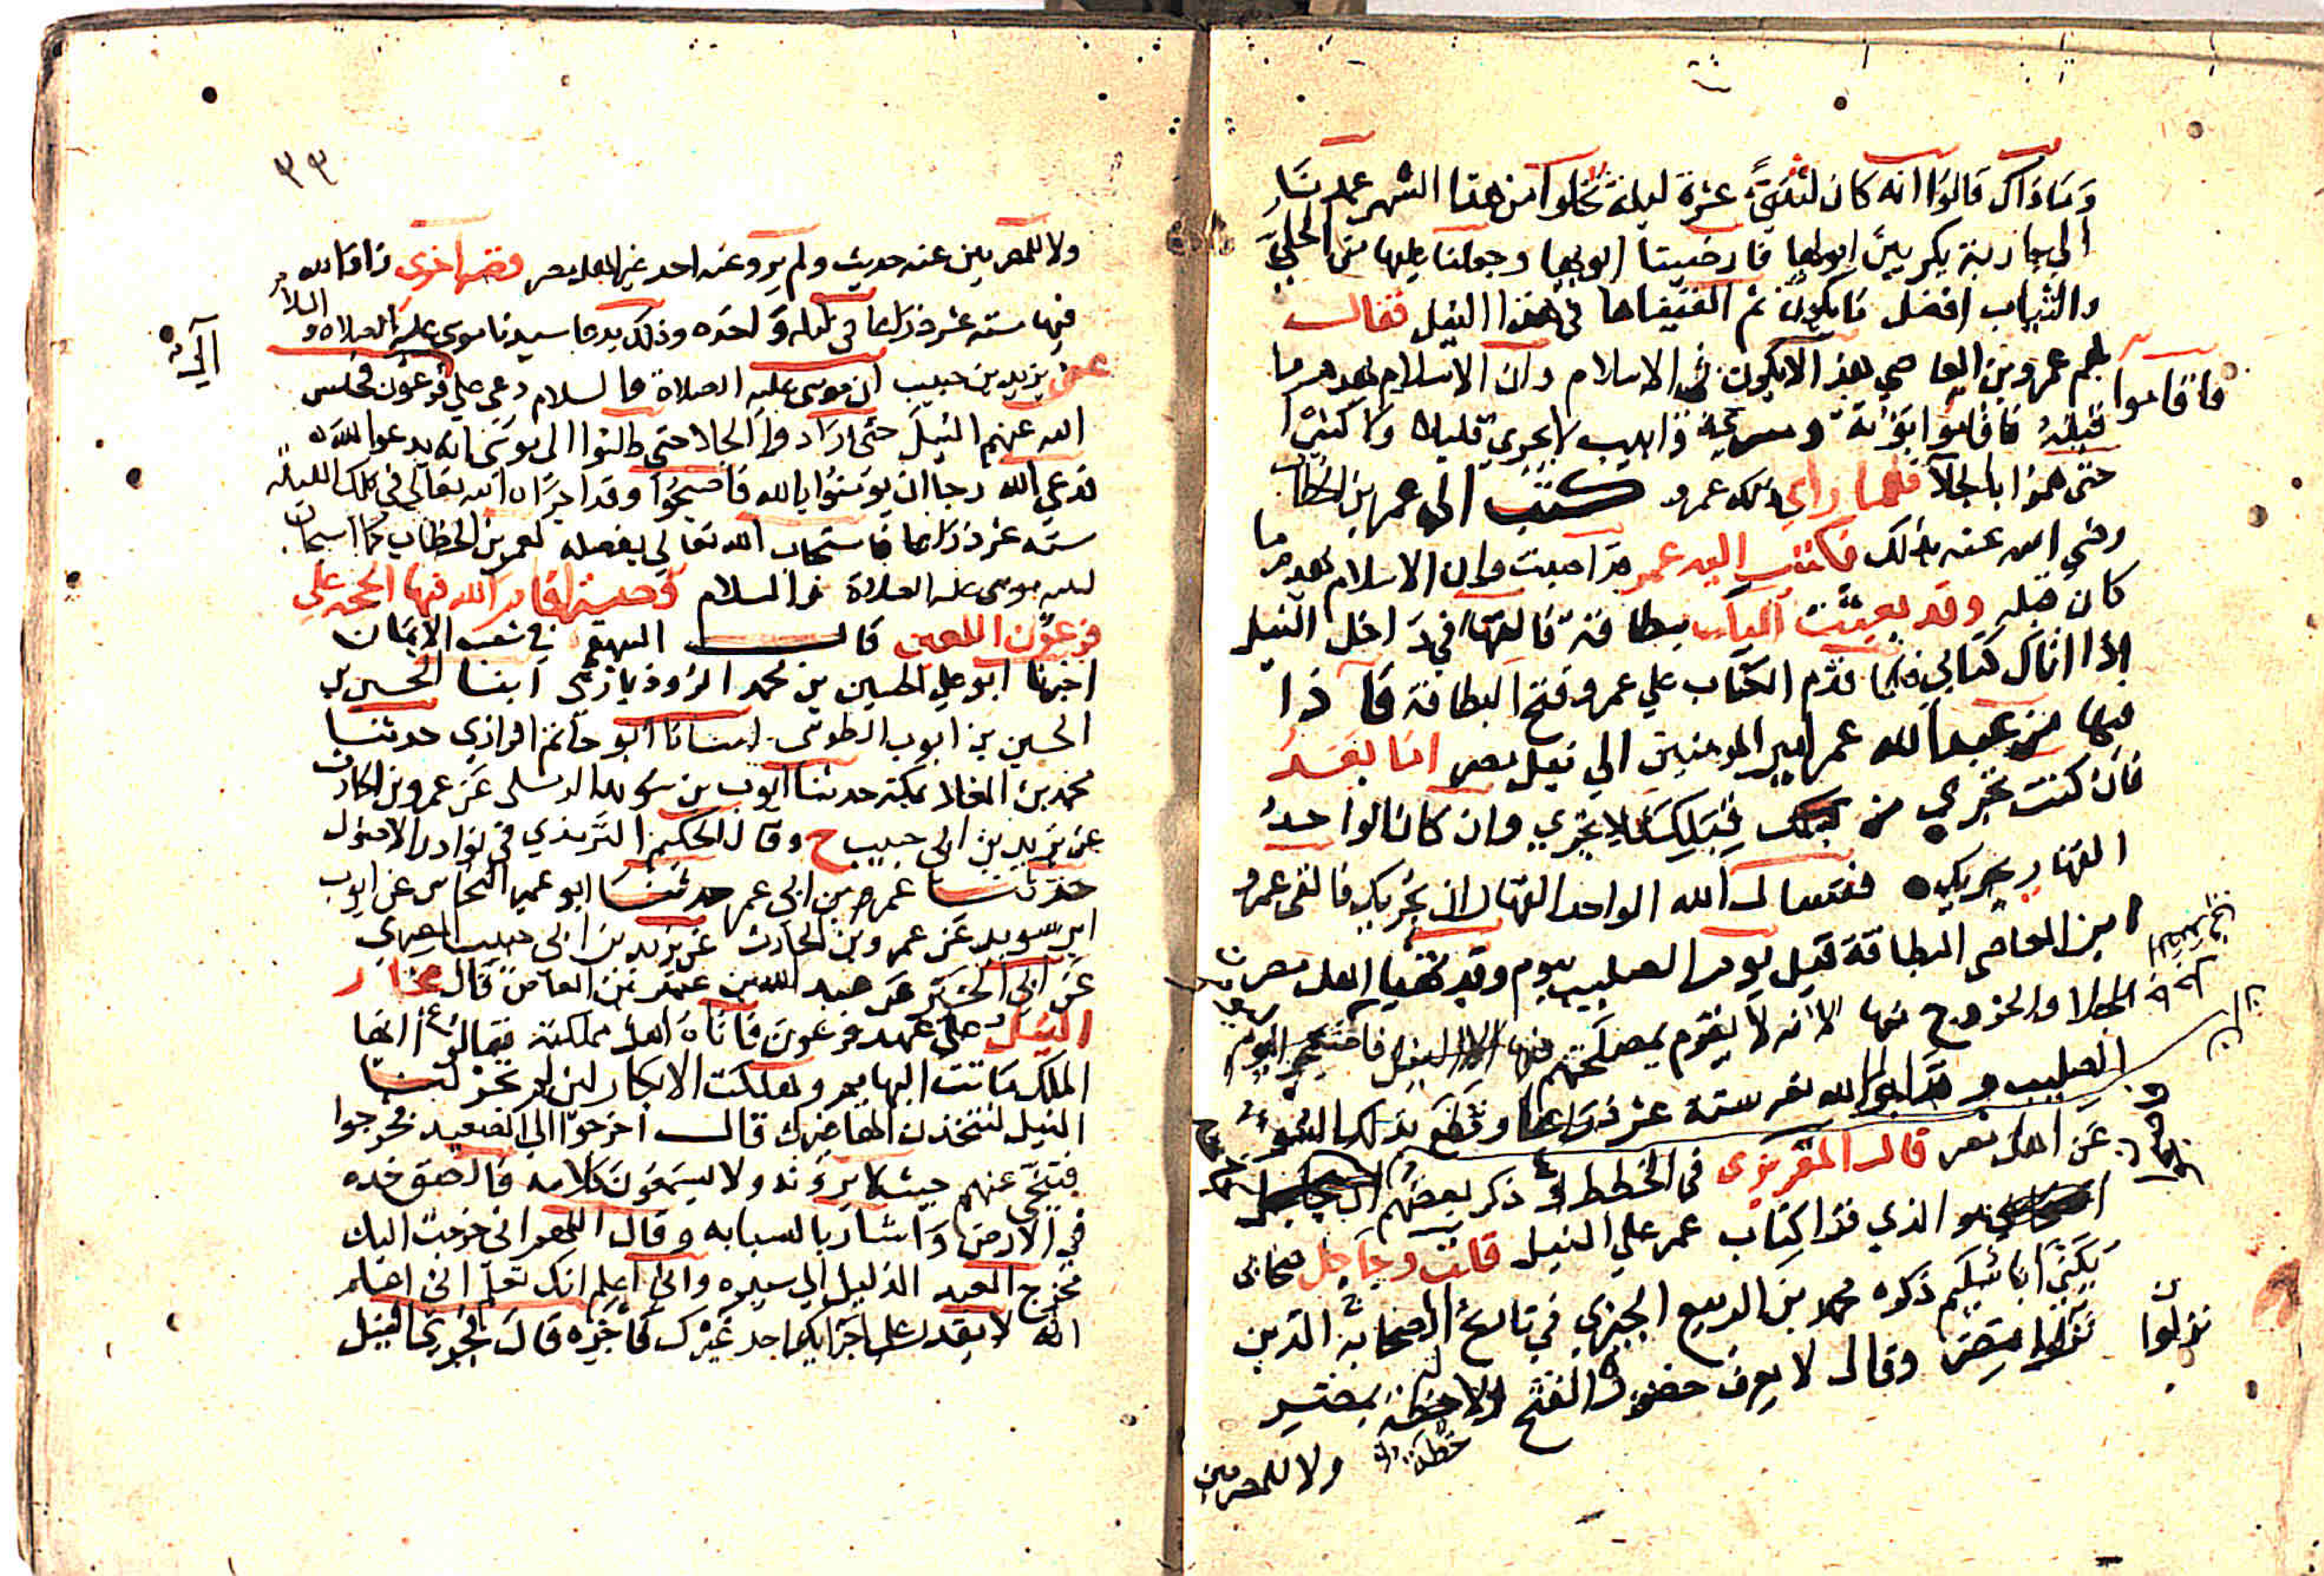 وما ذاك قالوا انه كان لثنتي عشرة ليلة تخلوا من هذا الشهر عمدنا
الي جارية بكر بين ابويها فارضينا ابويها وجعلنا عليها من الحلي
والثياب افضل ما يكون ثم القيناها في هذا النيل فقال
لهم عمرو بن العاصي هذا لا يكون في الاسلام وان الاسلام يهدم ما
فاقاموا
قبله فاقاموا بؤنة ومسري ذاهب لا يجري قليلا ولا كثيرا
حتي هموا بالجلا فلما راي ذلك عمرو كتب الي عمر بن الخطاب
رضي الله عنه بذلك فكتب اليه عمر قد اصبت وان الاسلام يهدم ما
كان قبله وقد بعثت اليك ببطاقة فالقها في داخل النيل
اذا اتاك كتابي فلما قدم الكتاب علي عمرو فتح البطاقة فاذا
فيها من عبد الله عمر امير المومنين الي نيل مصر اما بعد
فان كنت تجري من قبلك فلا تجري وان كان الواحد
القهار يجريك فنسال الله الواحد القهار ان يجريك فالقي عمرو
بن العاصي البطاقة قبل يوم الصليب بيوم وقد تهيا اهل مصر
للجلا والخروج منها لانه لا يقوم بمصلحتهم فيها الا النيل فاصبح يوم
الصليب وقد اجراه الله تعالى ستة عشر ذراعا وقطع تلك السنة
عن اهل مصر قال المقريزي في الخطط وذكر بعضهم ان
هو الذي قرا كتاب عمر علي النيل قلت وجاحل صحابي
يكني ابا شبيكم ذكره محمد بن الربيع الجيزي في تاريخ الصحابة الذين
نزلوا مصر وقال لا يعرف حضوره الفتح ولا خطة بمصر
نزلوا
ولا للمصريين
٣٩
ولا للمصريين عنه حديث ولم يرو عنه احد غير اهل مصر وفيها اخرى زاد الله
فيها ستة عشر ذراعا في ليلة واحدة وذلك بدعا سيدنا موسى عليه الصلاة والسلام
عن يزيد بن حبيب ان موسى عليه الصلاة والسلام دعي علي فرعون فحبس
الله عنهم النيل حتي ارادوا الجلا حتي طلبوا الى موسى ان يدعو الله
فدعي الله رجا ان يومنوا بالله فاصبحوا وقد اجراه الله تعالى في تلك الليلة
ستة عشر ذراعا فاستجاب الله تعالي بفضله لعمر بن الخطاب كما استجاب
لنبيه موسى عليه الصلاة والسلام وقصة اقام الله فيها الحجة علي
فرعون اللعين قال البيهقي في شعب الايمان
اخبرنا ابو علي الحسين بن محمد الروذباري انبنا الحسين بن
الحسين بن ايوب الطوسي انبانا ابو حاتم الرازي حدثنا
محمد بن بمكة حدثنا ايوب بن سويد الرملي عن عمرو بن الحارث
عن يزيد بن ابي حبيب ح وقال الحكيم الترمذي في نوادر الاصول
حدثنا عمر بن ابي عمر حدثنا ابو عمير النحاس عن ايوب
ابن سويد عن عمرو بن الحارث عن يزيد بن ابي حبيب المصري
عن ابي الخير عن عبد الله بن عمرو بن العاص قال غار
النيل علي عهد فرعون فاتاه اهل مملكته فقالوا ايها
الملك ماتت البهايم وهلكت الابكار لين لم تجر لنا
النيل لنتخذن الها غيرك قال اخرجوا الي الصعيد فخرجوا
فتنحي عنهم حيث لا يرونه ولا يسمعون كلامه فالصق خده
في الارض واشار بالسبابه وقال اللهم اني خرجت اليك
مخرج العبد الذليل الي سيده واني اعلم انك تعلم اني اعلم
انه لا يقدر علي اجرايه احد غيرك فاجره قال فجري النيل